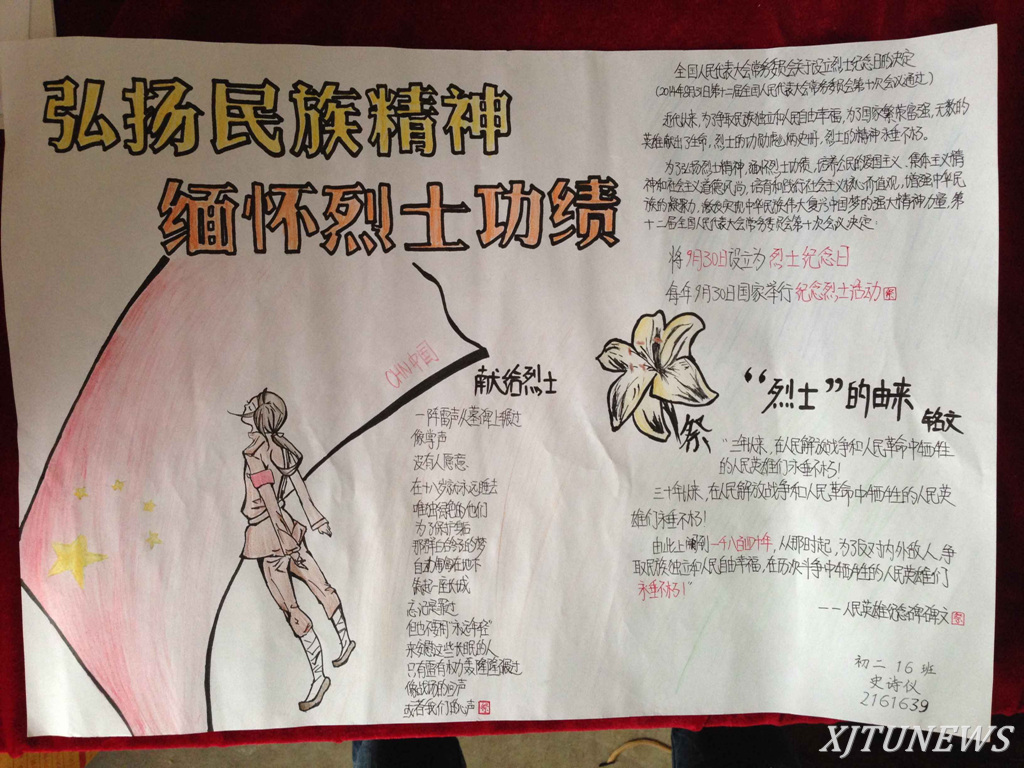 弘扬民族精神
缅怀烈士功绩
全国人民代表大会常务委员会关于设立烈士纪念日的决定
(2014年8月31日第十二届全国人民代表大会常务委员会第十次会议通过)
近代以来,为了争取民族独立和人民自由幸福,为了国家繁荣富强,无数的
英雄献出了生命,烈士的功勋彪炳史册,烈士的精神永垂不朽。
为了弘扬烈士精神,缅怀烈士功绩,培养公民的爱国主义、集体主义精
神和社会主义道德风尚,培育和践行社会主义核心价值观,增强中华民
族的凝聚力,激发实现中华民族伟大复兴中国梦的强大精神力量,第
十二届全国人民代表大会常务委员会第十次会议决定:
将9月30日设立为烈士纪念日
每年9月30日国家举行纪念烈士活动
CHN中国
献给烈士
一阵雷声从墓碑上辗过
像字声
没有人愿意
在十八岁就永远逝去
唯独绿色的他们
为了保护身后
那群白鸽子的梦
自动
筑起一座长城
忘记
但也不要用"永远年轻"
来安慰这些长眠的人
只有雷有权力轰隆隆辗过
像战场的回声
或者我们的心声
祭
“烈士”的由来
铭文
"三年以来,在人民解放战争和人民革命中牺牲
的人民英雄们永垂不朽!
三十年以来,在人民解放战争和人民革命中牺牲的人民英
雄们永垂不朽!
由此上溯到一千八百四十年,从那时起,为了反对内外敌人,争
取民族独立和人民自由幸福,在历次斗争中牺牲的人民英雄们
永垂不朽!"
——人民英雄纪念碑碑文
初二16班
史诗仪
2161639
XJTUNEWS